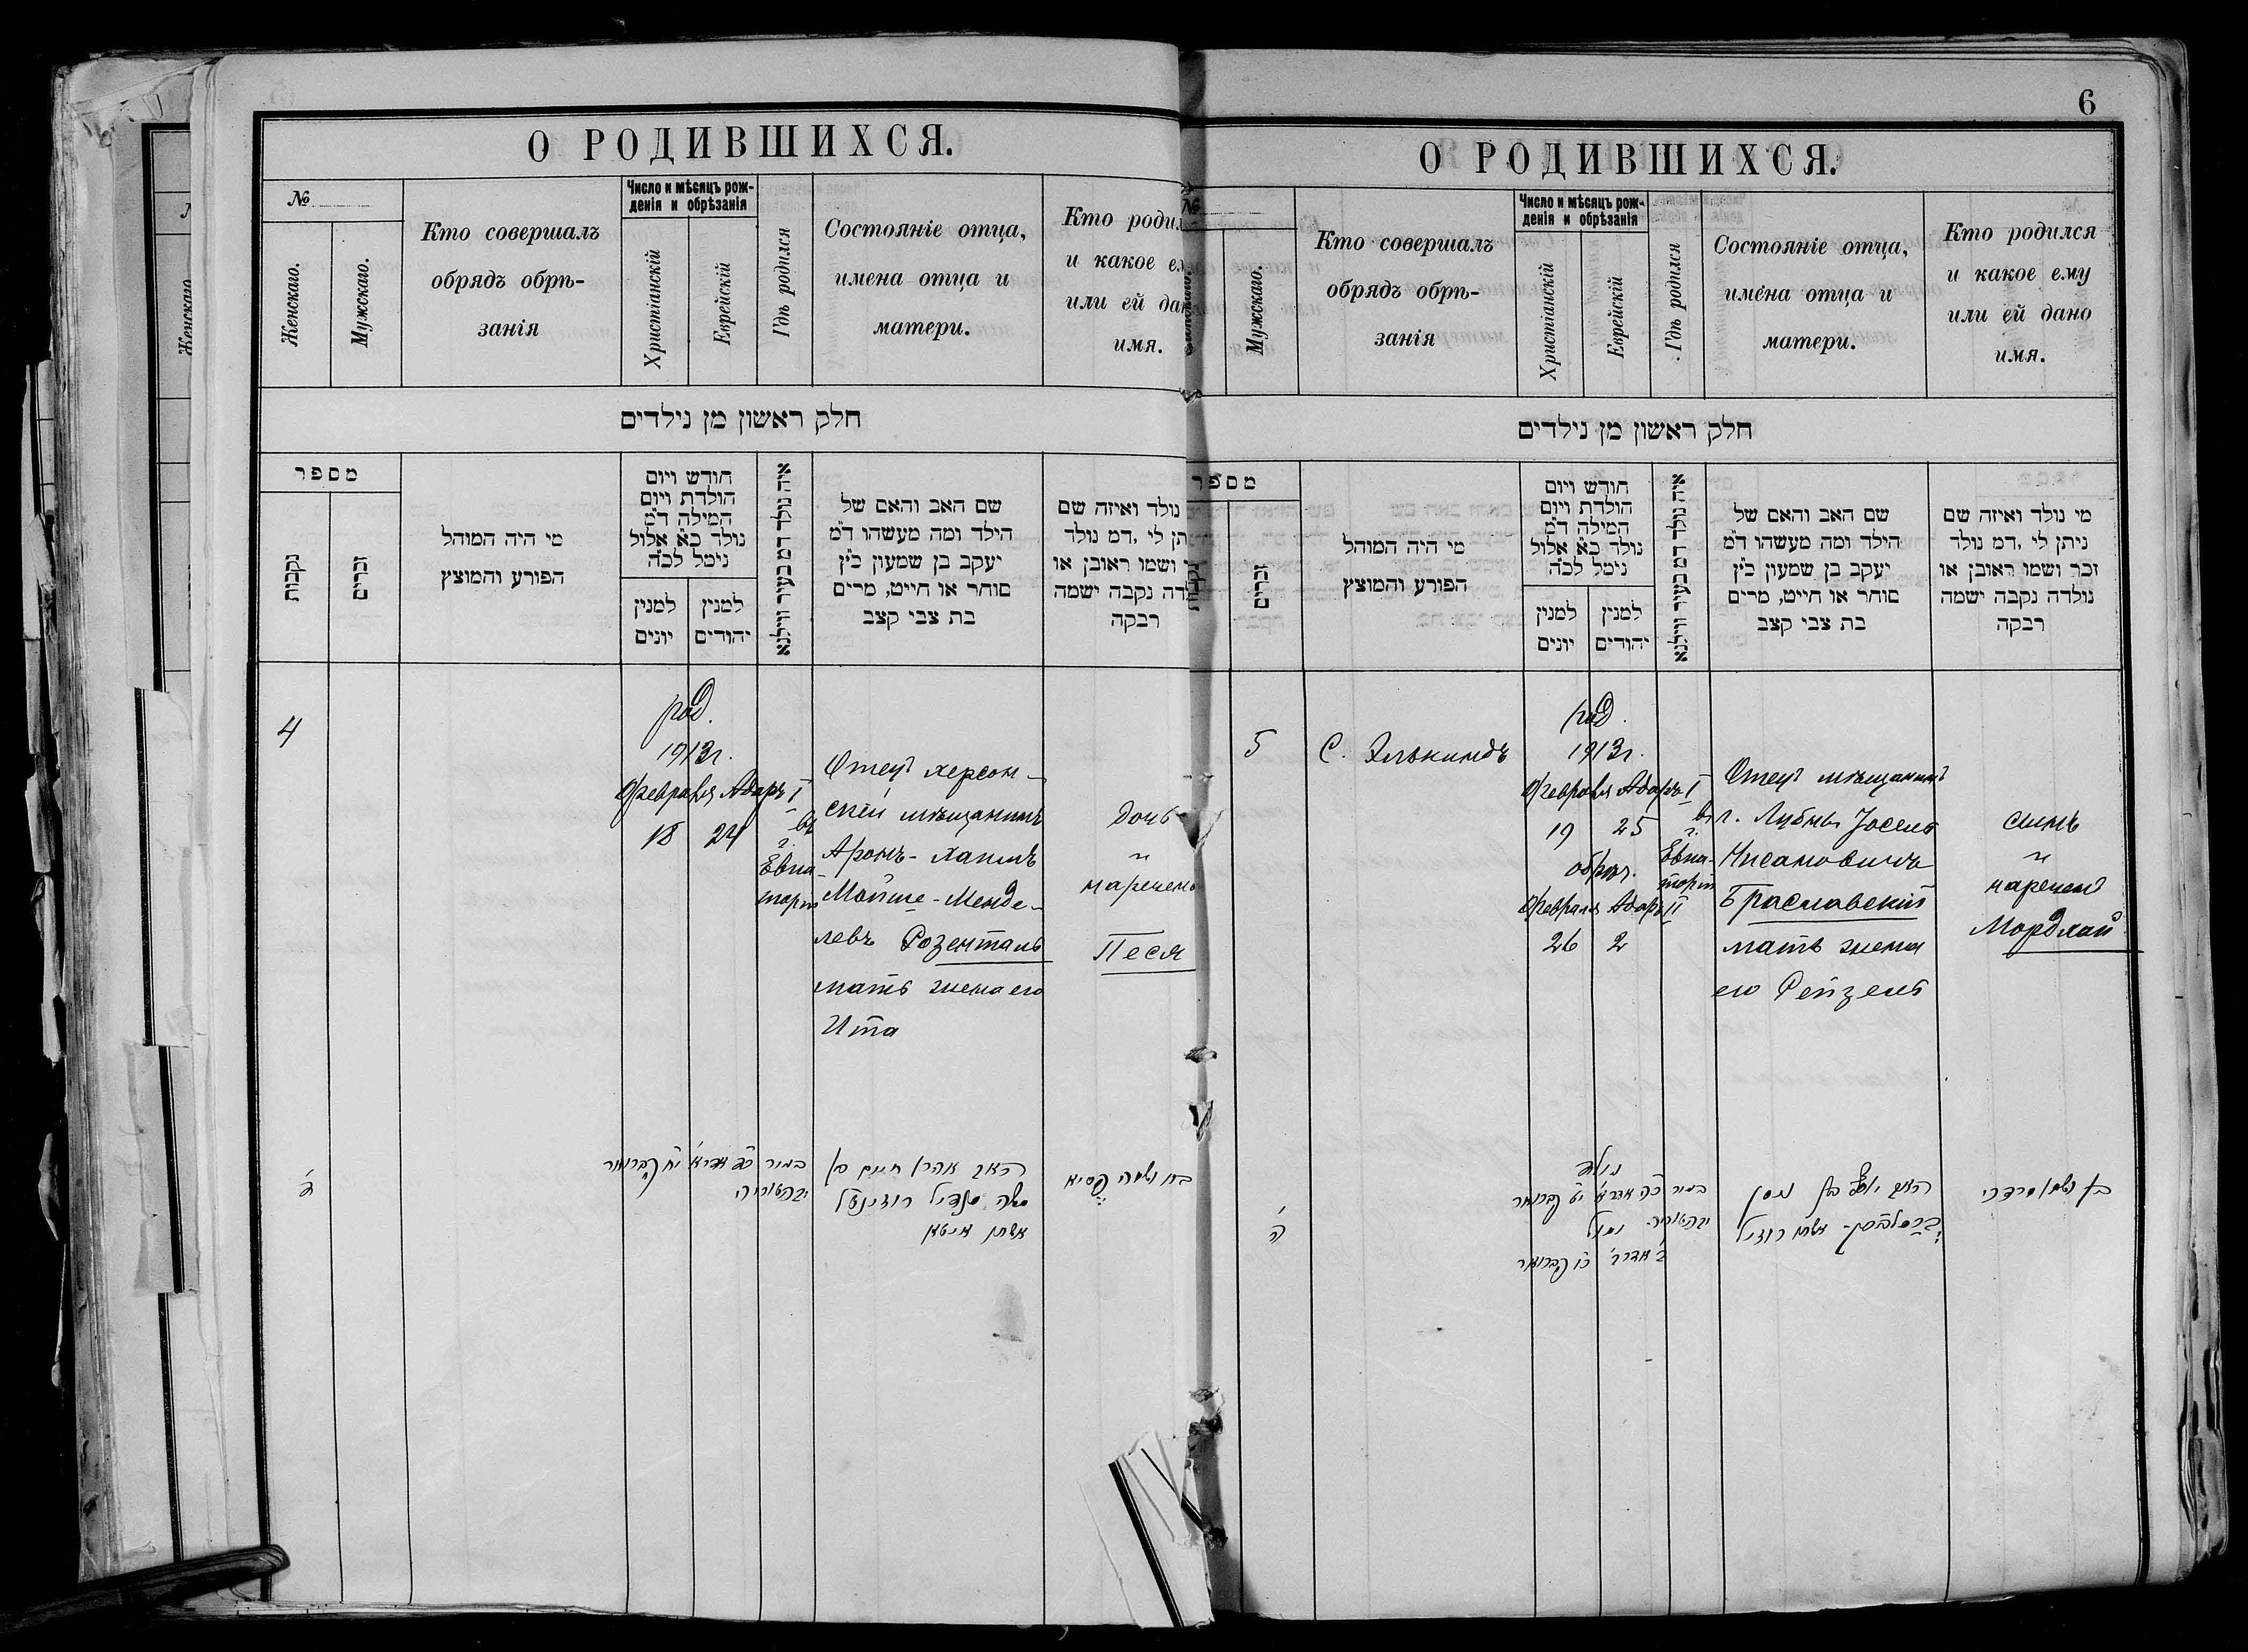 О РОДИВШИХСЯ.
№
Женскаго.
Мужскаго.
Кто совершалъ
обрядъ обрѣ-
занія
Число и мѣсяцъ рож-
денія и обрѣзанія
Христіанскій
Еврейскій
Гдѣ родился
Состояніе отца,
имена отца и
матери.
Кто родил
и какое ем
или ей дан
имя.
חלק ראשון מן נילדים
מספר
נקבות
זכרים
מי היה המוהל
הפורע והמוצץ
חודש ויום
הולדת ויום
המילה ד״מ
נולד כ״א אלול
נימל לכ״ה
למנין
יונים
למנין
יהודים
איה נולד דמ בעיר ווילנא
שם האב והאם של
הילד ומה מעשהו ד״מ
יעקב בן שמעון כ״ץ
סוחר או חייט, מרים
בת צבי קצב
נולד ואיזה שם
תן לי ,דמ נולד
ושמו ראובן או
דה נקבה ישמה
רבקה
4
род.
1913г.
Февраля Адаръ I
18 24
въ
г.
Евпа-
торіи
Отецъ херсон-
скій мѣщанинъ
Аронъ-Хаимъ
Мойше-Менде-
левъ Розенталь
мать жена его
Ита
Дочь
"
наречена
Песя
ד׳
במיר כ״ד אדר א׳ י״ח פברואר
האב אהרן חיים בן
משה מנדיל רוזינטל
אשתו איטא
בת ושמה פסיא
6
О РОДИВШИХСЯ.
№
Мужскаго.
Кто совершалъ
обрядъ обрѣ-
занія
Число и мѣсяцъ рож-
денія и обрѣзанія
Христіанскій
Еврейскій
Гдѣ родился
Состояніе отца,
имена отца и
матери.
Кто родился
и какое ему
или ей дано
имя.
חלק ראשון מן נילדים
מספר
נקבות
זכרים
מי היה המוהל
הפורע והמוצץ
חודש ויום
הולדת ויום
המילה ד״מ
נולד כ״א אלול
נימל לכ״ה
למנין
יונים
למנין
יהודים
איה נולד דמ בעיר ווילנא
שם האב והאם של
הילד ומה מעשהו ד״מ
יעקב בן שמעון כ״ץ
סוחר או חייט, מרים
בת צבי קצב
מי נולד ואיזה שם
ניתן לי ,דמ נולד
זכר ושמו ראובן או
נולדה נקבה ישמה
רבקה
5
С. Элькиндъ
род.
1913г.
Февраля Адаръ I
19 25
обрѣз.
Февраля Адаръ II
26 2
въ
г.
Евпа-
торіи
Отецъ мѣщанинъ
г. Лубны Іосель
Нисановичъ
Браславскій
мать жена
его Рейзель
сынъ
"
нареченъ
Мордхай
ה׳
נולד
במיר כ״ה אדר א׳ י״ט פברואר
נמול
ב׳ אדר ב׳ כ״ו פברואר
האב יוסף בן ניסן
ברסלבסקי אשתו רוזיל
בן ושמו מרדכי